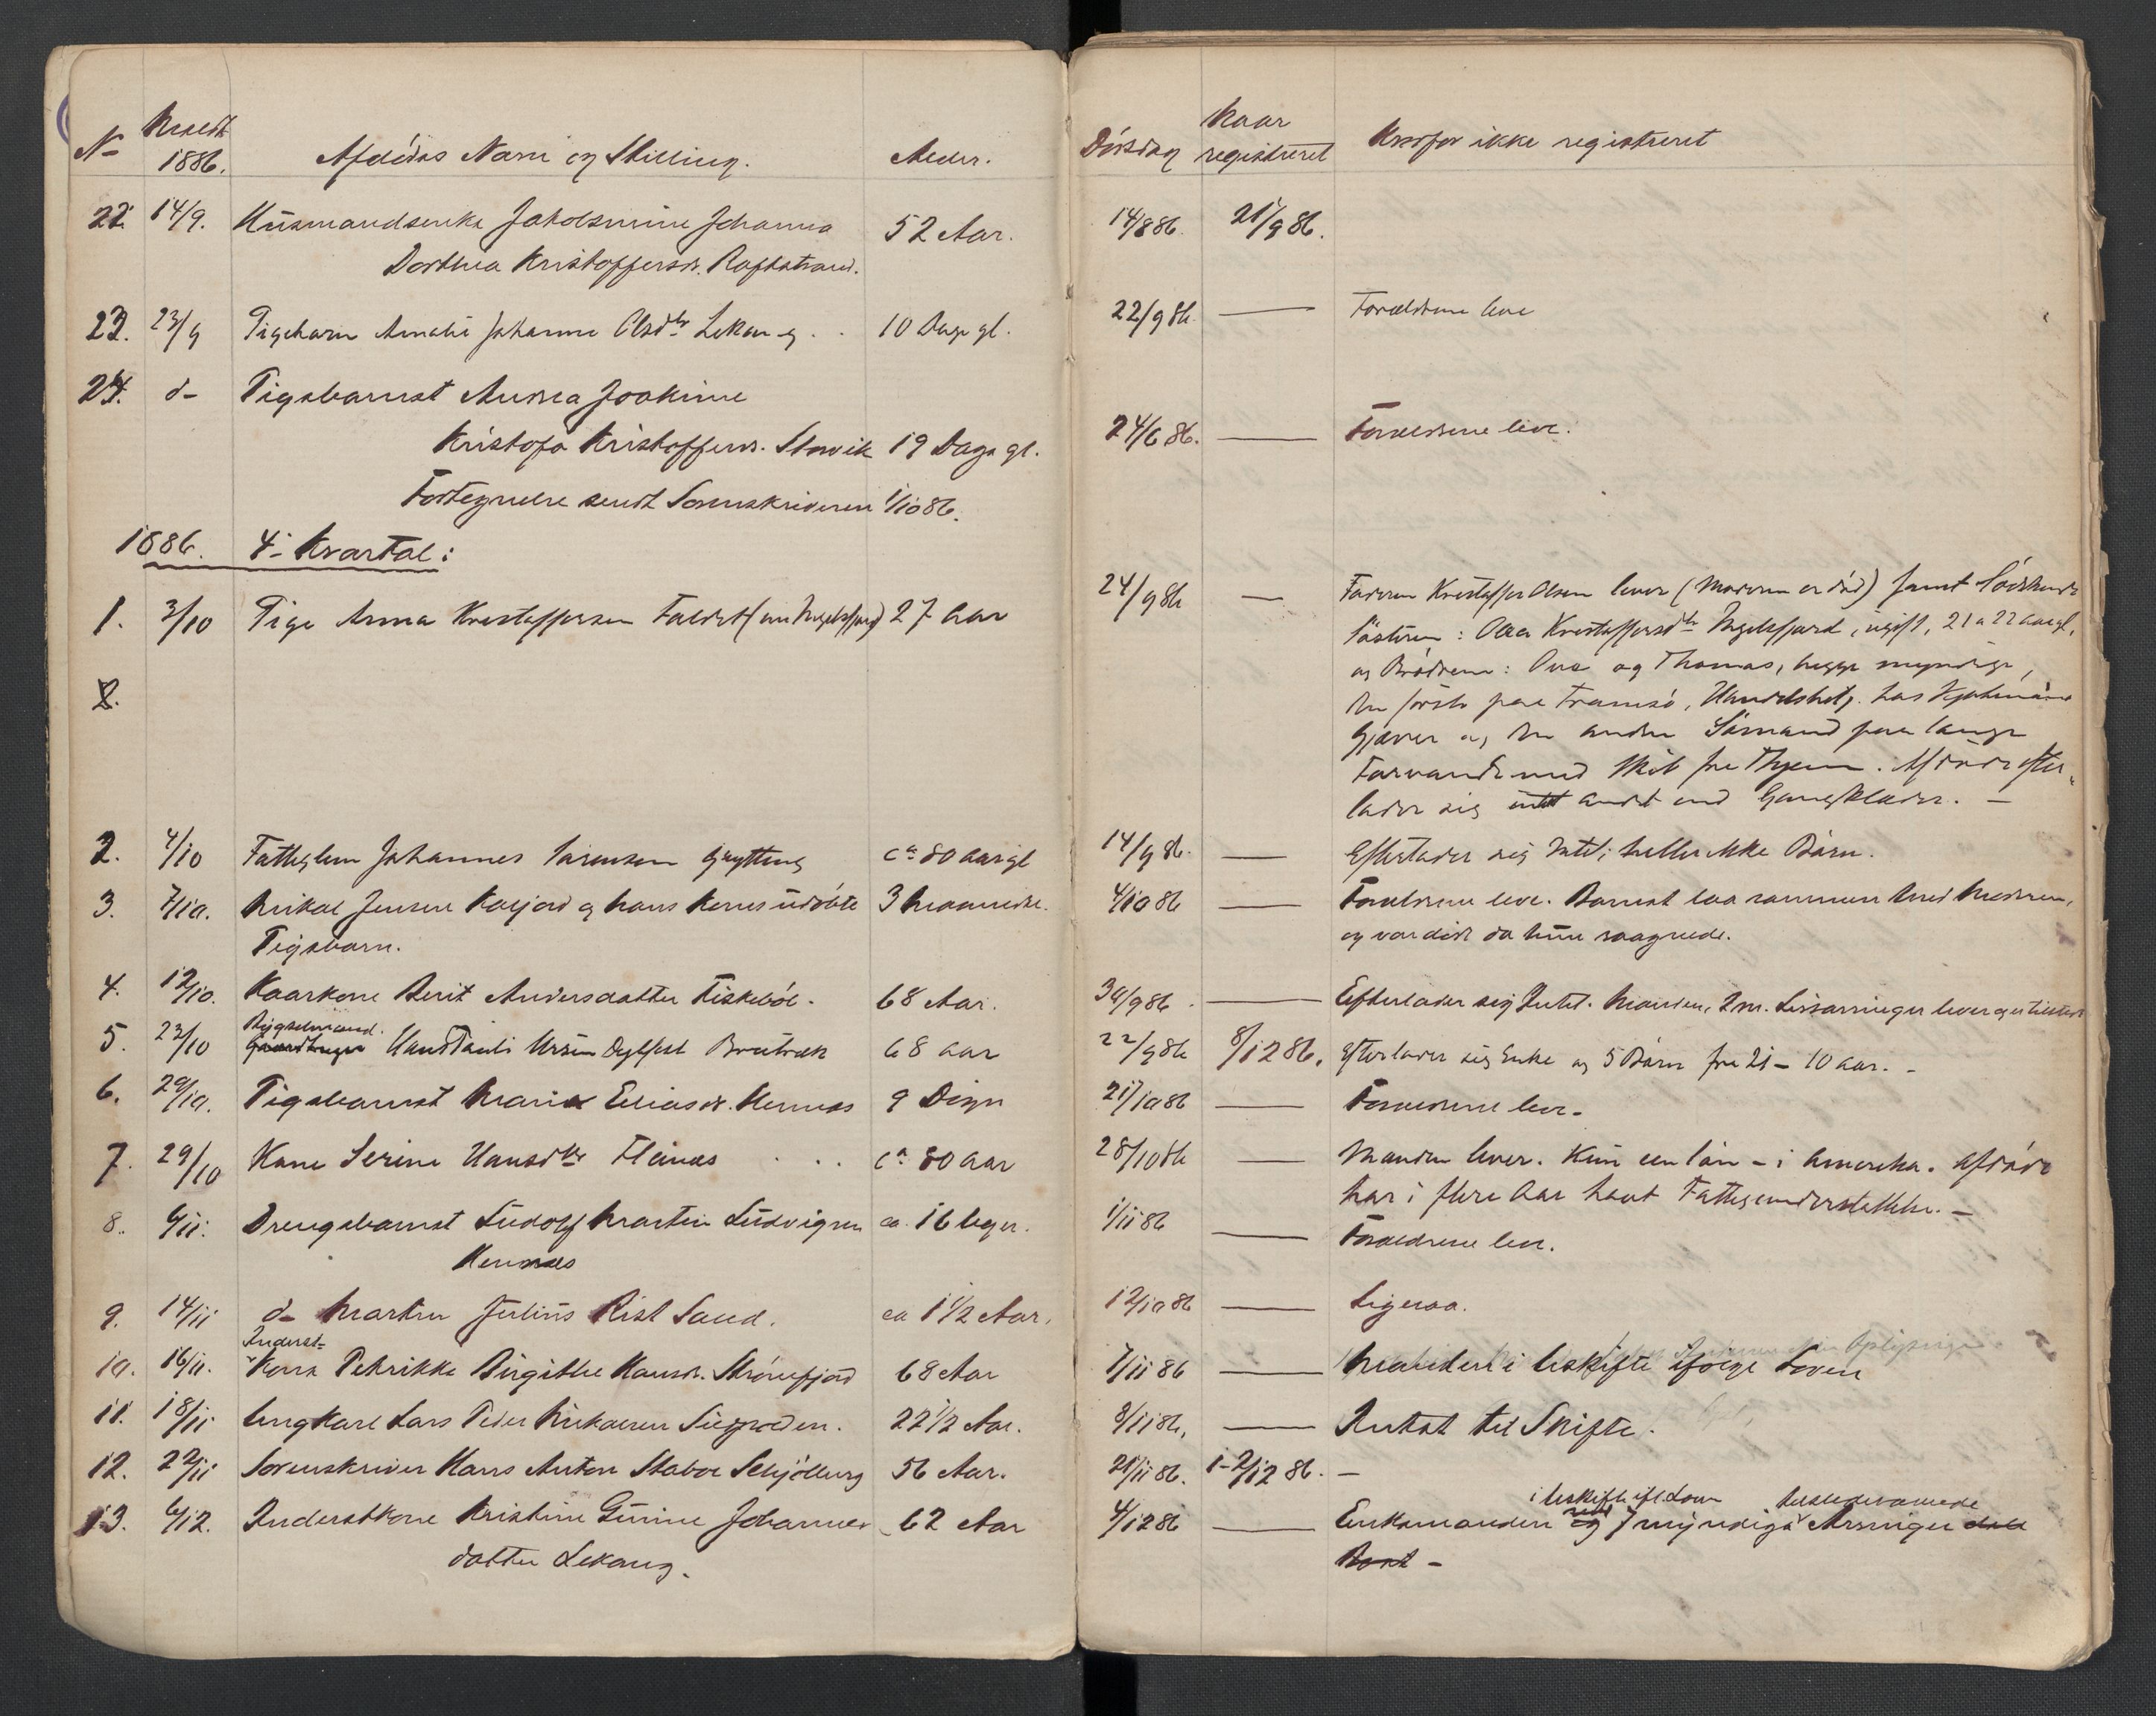 No Meldt 1886. Afdødes Navn og Stilling. Alder. Dødsdag Naar registreret Hvorfor ikke registreret
22. 14/9. Husmandsenke Jakobsmine Johanna 52 Aar. 14/8 86. 21/9 86.
Dorthea Kristoffersd. Raftstrand.
23. 23/9 Pigebarn Amalie Johanna Olsdtr Lekang. 10 Dage gl. 22/9 86. — Forældrene leve
24. d- Pigebarnet Andrea Joakime
Kristofa Kristoffersd. Storvik 19 Dage gl. 24/6 86. — Forældrene leve.
Fortegnelse sendt Sorenskriveren 1/10 86.
1886. 4- Kvartal:
1. 3/10 Pige Anna Kristoffersen 27 Aar 24/9 86 — Faderen Kristoffer Olsen lever (Moderen er død) samt Sødskende
Søsteren: Olea Kristoffersdtr Ingelsfjord, ugift, 21 a 22 Aar gl.
og Brødrene: Ove og Thomas, begge myndige,
den første paa Tromsø, Handelsbetj. hos Kjøbmand
Gjæver og den anden Sømand paa lange
Farvande med Skib fra Thjem. Afdøde efter-
lader sig intet andet end Gangklæder. —
2.
2. 4/10 Fattiglem Johannes Sørensen Gryttting ca 80 Aar gl 14/9 86. — Efterlader sig Intet; heller ikke Børn.
3. 7/10. Mikal Jensen Kaljord og hans Kones udøbte 3 Maaneder. 4/10 86 — Forældrene leve. Barnet laa sammen med Moderen,
Pigebarn. og var død da hun vaagnede.
4. 12/10. Kaarkone Berit Andersdatter Fiskebøl. 68 Aar. 30/9 86. — Efterlader sig Intet. Manden, 2 m. Livsarvinger lever og er tilstede
5. 23/10 Bygselmand. Gaardbruger Hans Pauli Ursin Dyhfest 68 Aar 22/9 86 8/12 86. Efterlader sig Enke og 5 Børn fra 21 - 10 Aar. -
6. 29/10. Pigebarnet Maria Eliasd. Hennes 9 Døgn 21/10 86 — Forældrene leve.
7. 29/10 Kone Serine Hansdtr Fleines . . . ca 80 Aar 28/10 86 — Manden lever. Kun een Søn - i Amerika. Afdøde
har i flere Aar havt Fattigunderstøttelse. —
8. 6/11. Drengebarnet Ludolf Martin Ludvigsen ca. 16 Uger. 1/11 86 — Forældrene leve.
Hennes
9. 14/11 d- Martin Julius Rist Sand. ca 1 1/2 Aar. 12/10 86 — Ligesaa.
10. 16/11. Inderst- Kone Petrikke Birgitte Hansd. Strømfjord 68 Aar 7/11 86 — Manden i Uskifte ifølge Loven
11. 18/11 Ungkarl Lars Peder Mikalsen 22 1/2 Aar. 8/11 86. — Intet til Skifte.
12. 22/11 Sorenskriver Hans Anton Staboe Schjølberg 56 Aar. 21/11 86. 1-2/12 86. —
13. 6/12. Inderstkone Kristine Gurine Johannes- 62 Aar 4/12 86 — Enkemanden i Uskifte ifl. Loven med og 7 myndige tilstedeværende Arvinger
datter Lekang. Boet -